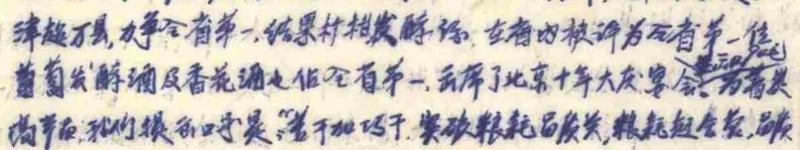 津超万县,力争全省第一,结果柑桔发酵酒,在省内被评为全省第一佳
葡萄发酵酒及香花酒也佔全省第一,出席了北京十年大庆宴会。为着
节,我们提出口号是,"苦干加巧干,突破粮耗品质关,粮耗超全,品质